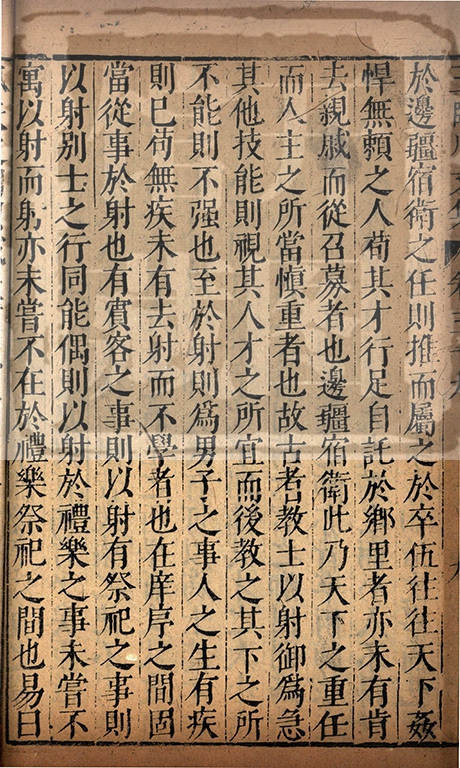 於邊疆宿衛之任則推而屬之於卒伍往往天下姦
悍無頼之人苟其才行足自託於鄉里者亦未有肯
去親戚而從召募者也邊疆宿衛此乃天下之重任
而人主之所當慎重者也故古者教士以射御爲急
其他技能則視其人才之所宜而後教之其下之所
不能則不强也至於射則爲男子之事人之生有疾
則已苟無疾未有去射而不學者也在庠序之間固
當從事於射也有賓客之事則以射有祭祀之事則
以射别士之行同能偶則以射於禮樂之事未嘗不
寓以射而射亦未嘗不在於禮樂祭祀之間也易曰